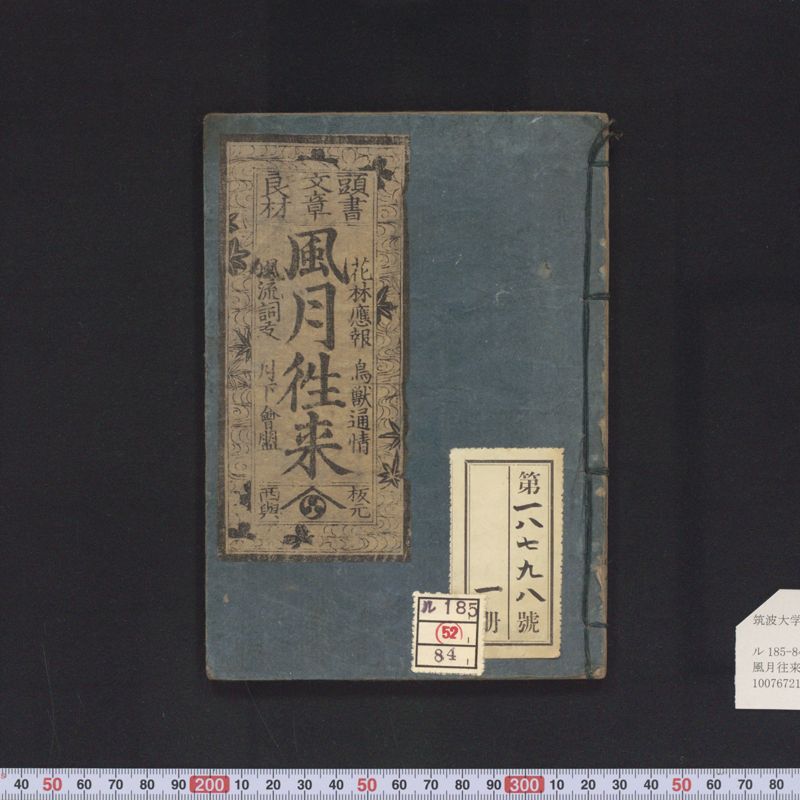 頭書
文章
良材
花林應報 鳥獣通情
風月徃来
風流詞友 月下會盟
板元
西與
第一八七九八號
一册
ル 185
52
84
筑波大学
ル 185-84
風月往来
10076721
40 50 60 70 80 90 200 10 20 30 40 50 60 70 80 90 300 10 20 30 40 50 60 70 80